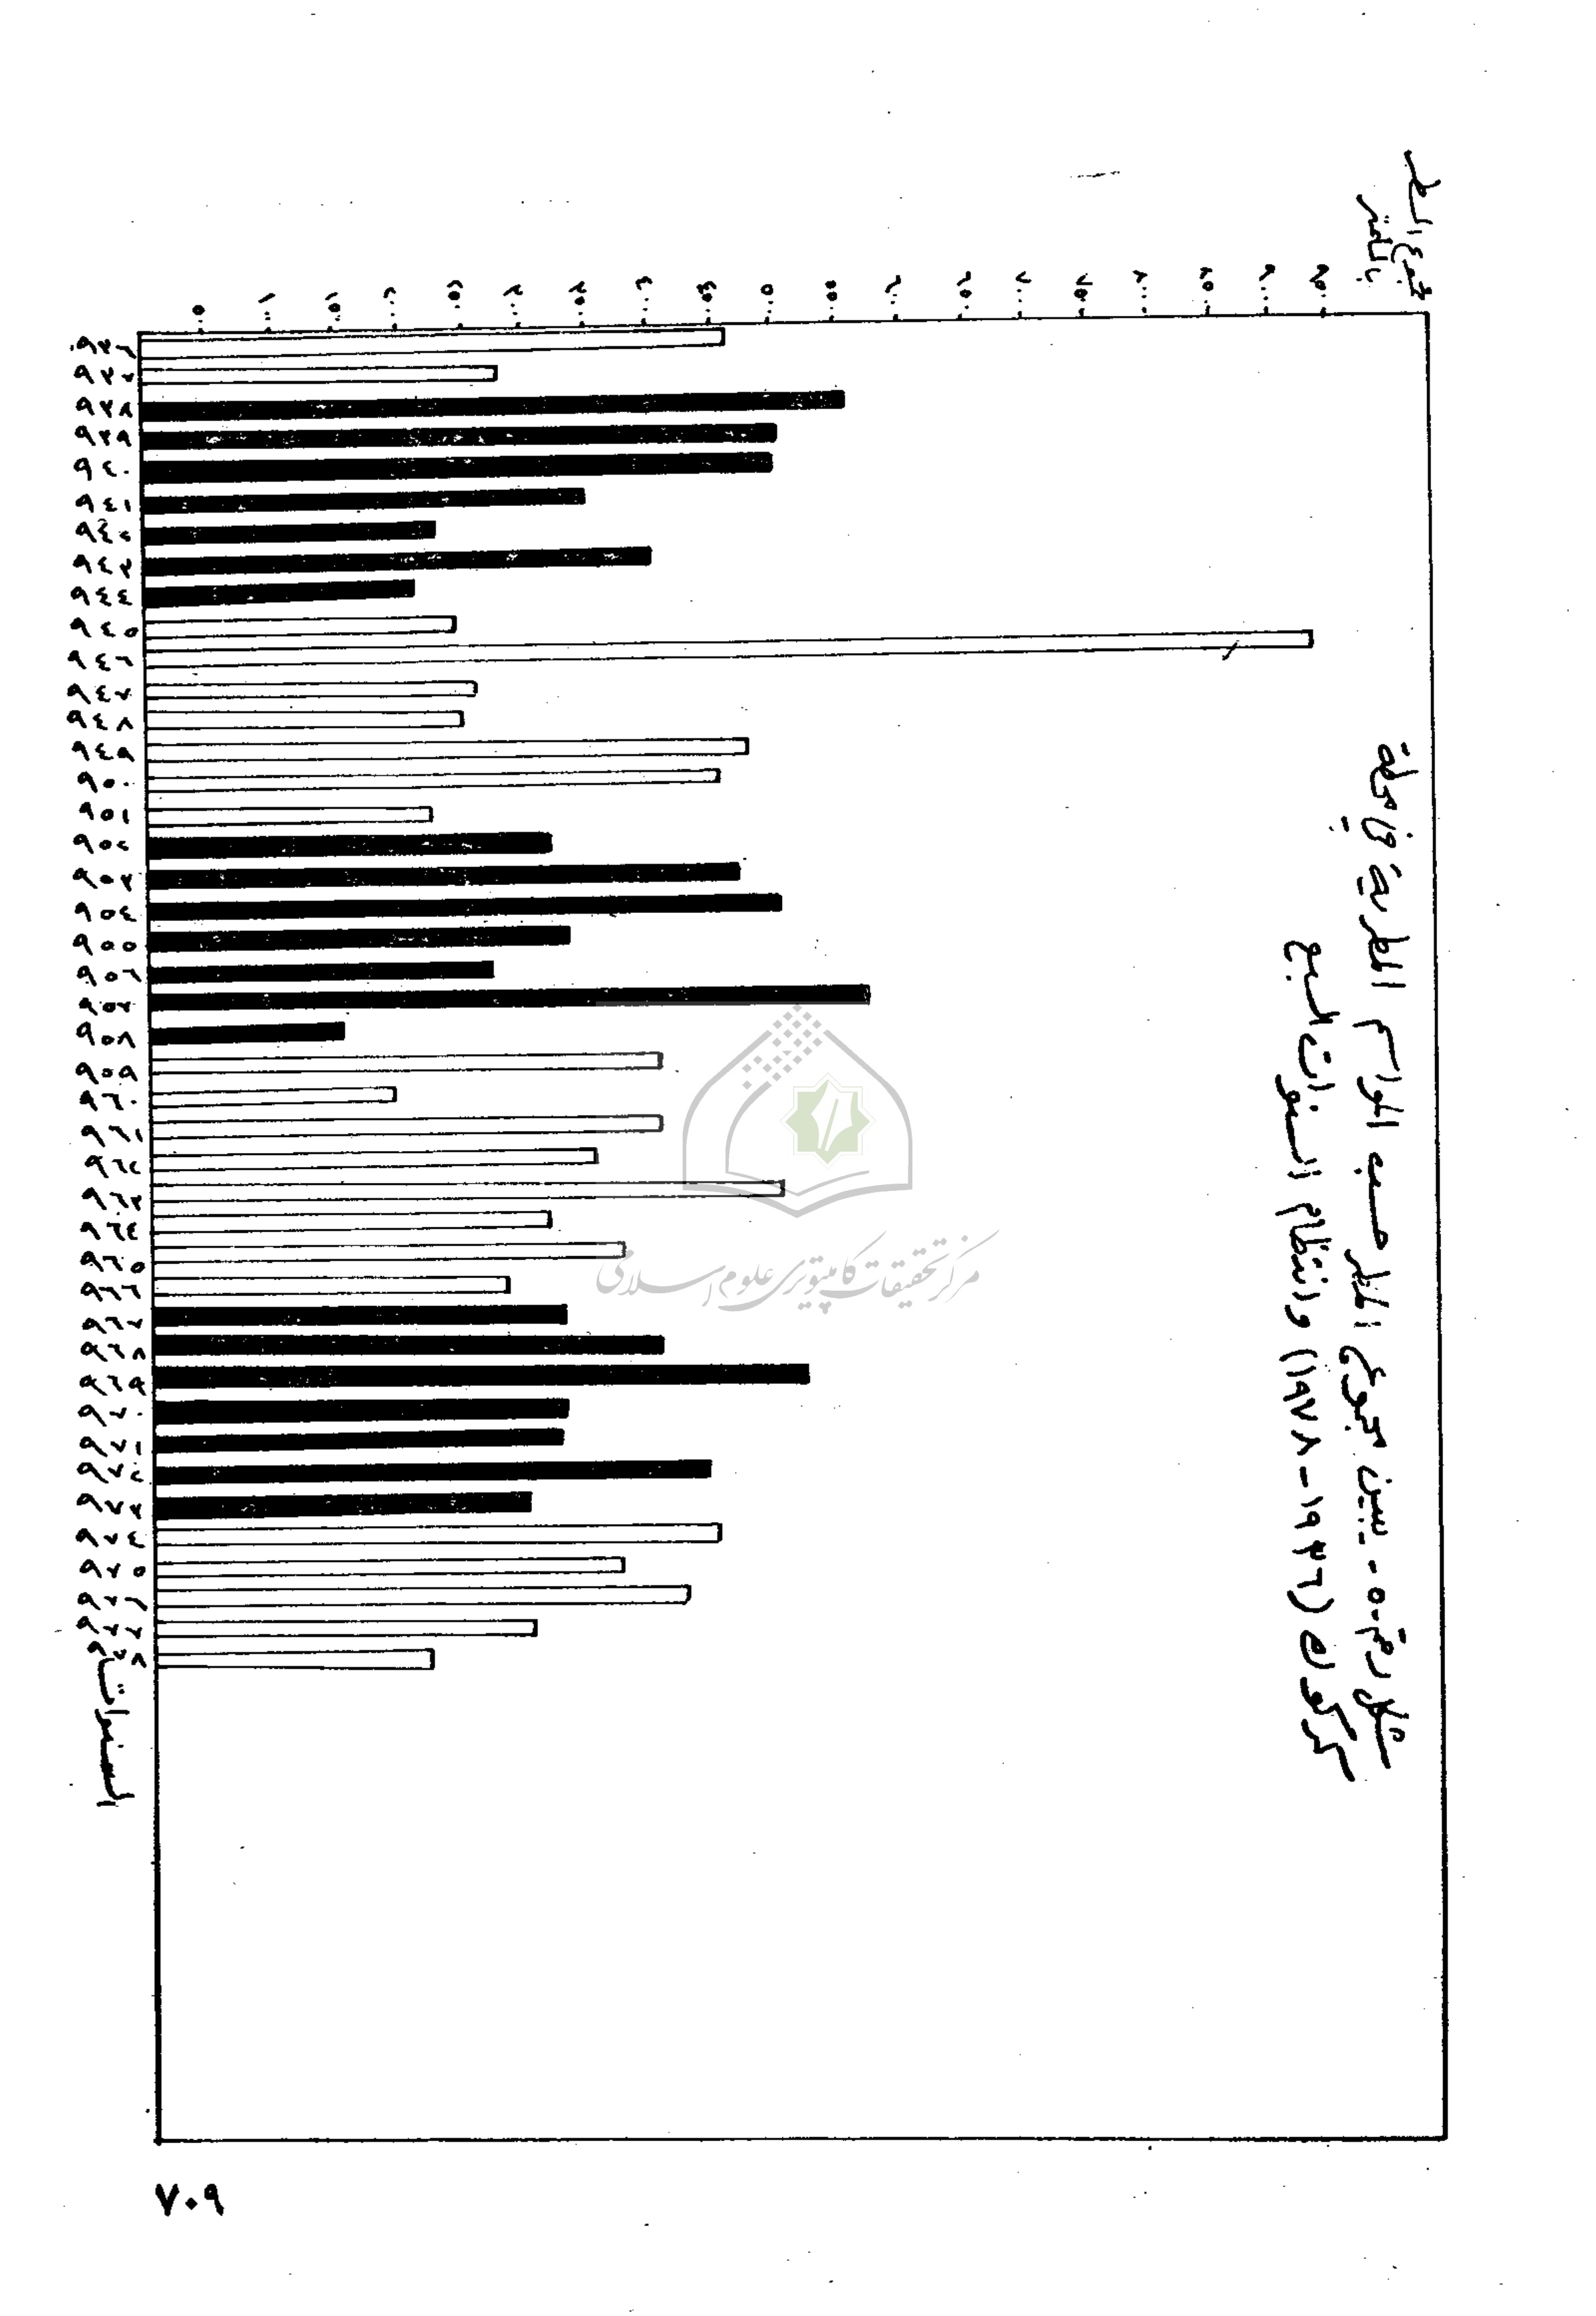 شكل رقم -٥- يبين مجموع المطر حسب المواسم المطرية في محطة
كركوك (١٩٣٦-١٩٧٨) وانتظام السنوات السبع
مجموع المطر
بالملمتر
٩٥٠
٩٠٠
٨٥٠
٨٠٠
٧٥٠
٧٠٠
٦٥٠
٦٠٠
٥٥٠
٥٠٠
٤٥٠
٤٠٠
٣٥٠
٣٠٠
٢٥٠
٢٠٠
١٥٠
١٠٠
٥٠
٩٣٦
٩٣٧
٩٣٨
٩٣٩
٩٤٠
٩٤١
٩٤٢
٩٤٣
٩٤٤
٩٤٥
٩٤٦
٩٤٧
٩٤٨
٩٤٩
٩٥٠
٩٥١
٩٥٢
٩٥٣
٩٥٤
٩٥٥
٩٥٦
٩٥٧
٩٥٨
٩٥٩
٩٦٠
٩٦١
٩٦٢
٩٦٣
٩٦٤
٩٦٥
٩٦٦
٩٦٧
٩٦٨
٩٦٩
٩٧٠
٩٧١
٩٧٢
٩٧٣
٩٧٤
٩٧٥
٩٧٦
٩٧٧
٩٧٨
السنوات
مرکز تحقیقات کامپیوتری علوم اسلامی
٧٠٩